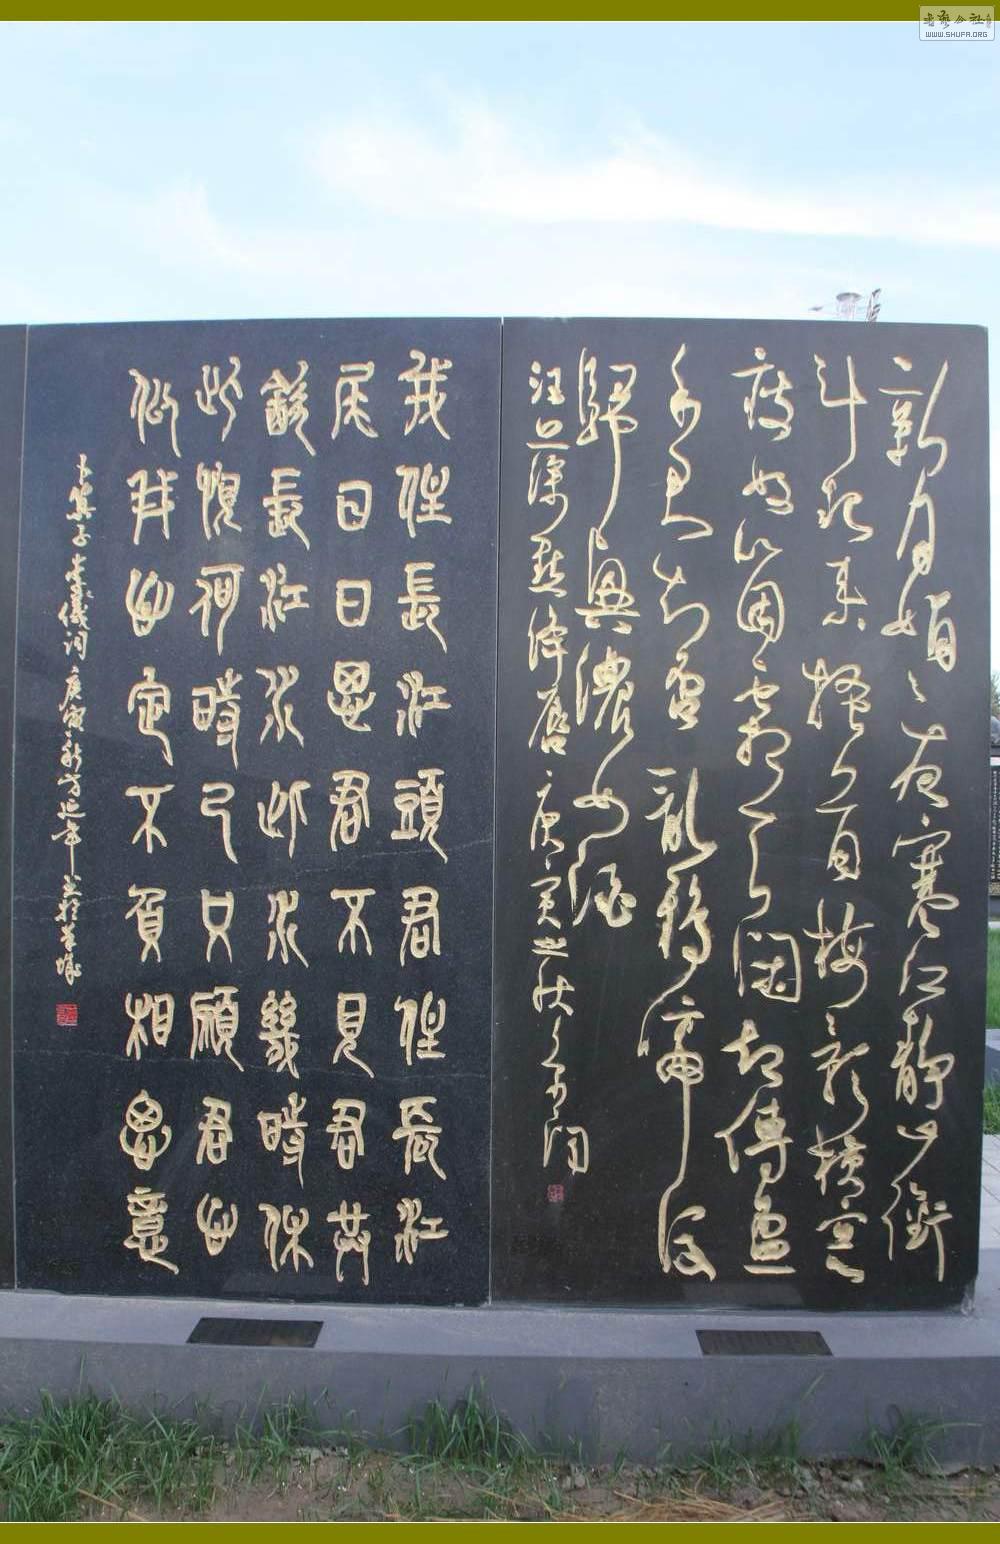 新月娟々夜寒江靜山銜
斗起來搔首梅影橫窗
瘦好個霜天閑却傳盃
手君知否亂鴉啼後
歸興濃如酒
點絳唇庚寅之秋
我住長江頭君住長江
尾日日思君不見君共
飲長江水此水幾時休
此恨何時已只願君心
似我心定不負相思意
卜算子李之儀詞庚寅秋方延年书於
WWW.SHUFA.ORG